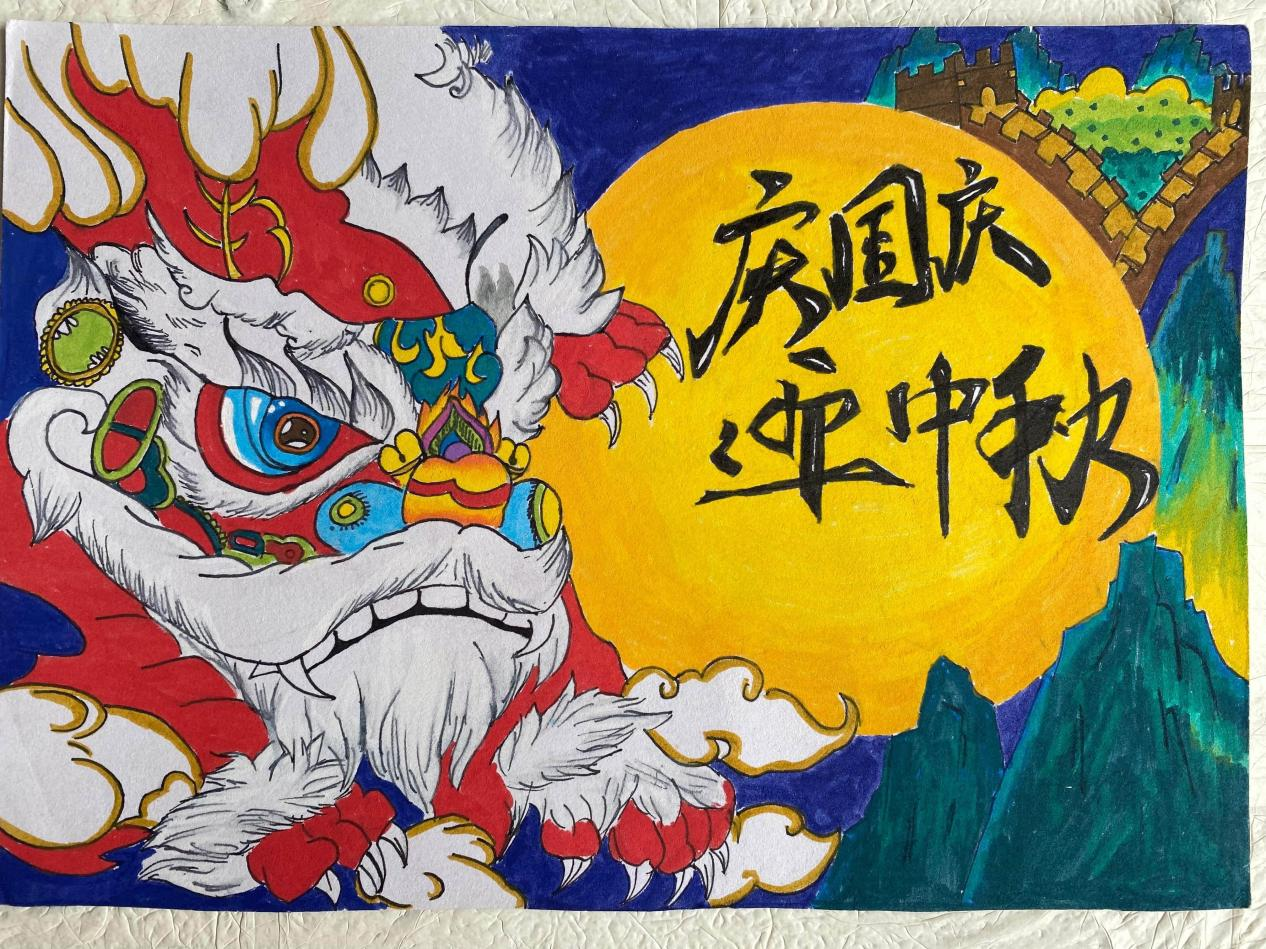 庆国庆
迎中秋